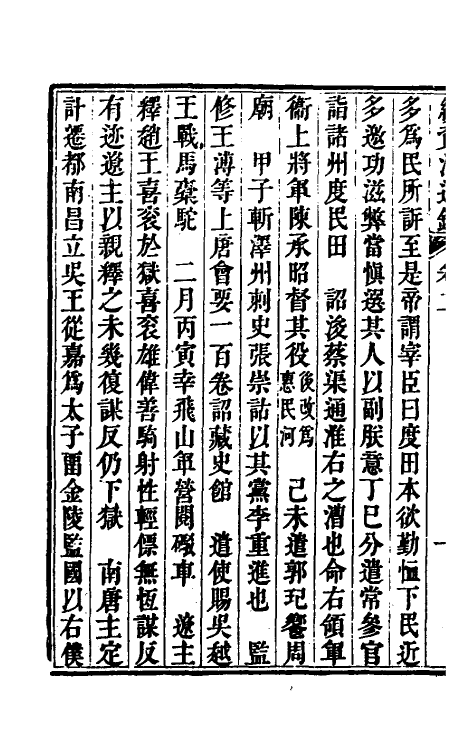 多爲民所訴至是帝謂宰臣曰度田本欲勤恤下民近
多邀功滋弊當愼選其人以副朕意丁巳分遣常參官
詣諸州度民田　詔浚蔡渠通淮右之漕也命右領軍
衞上將軍陳承昭督其役後改爲惠民河　己未遣郭玘饗周
廟　甲子斬澤州刺史張崇詁以其黨李重進也　監
修王溥等上唐會要一百卷詔藏史館　遣使賜吳越
王戰馬橐駝　二月丙寅幸飛山軍營閱礮車　遼主
釋趙王喜袞於獄喜袞雄偉善騎射性輕僄無恆謀反
有迹遼主以親釋之未幾復謀反仍下獄　南唐主定
計遷都南昌立吳王從嘉爲太子留金陵監國以右僕